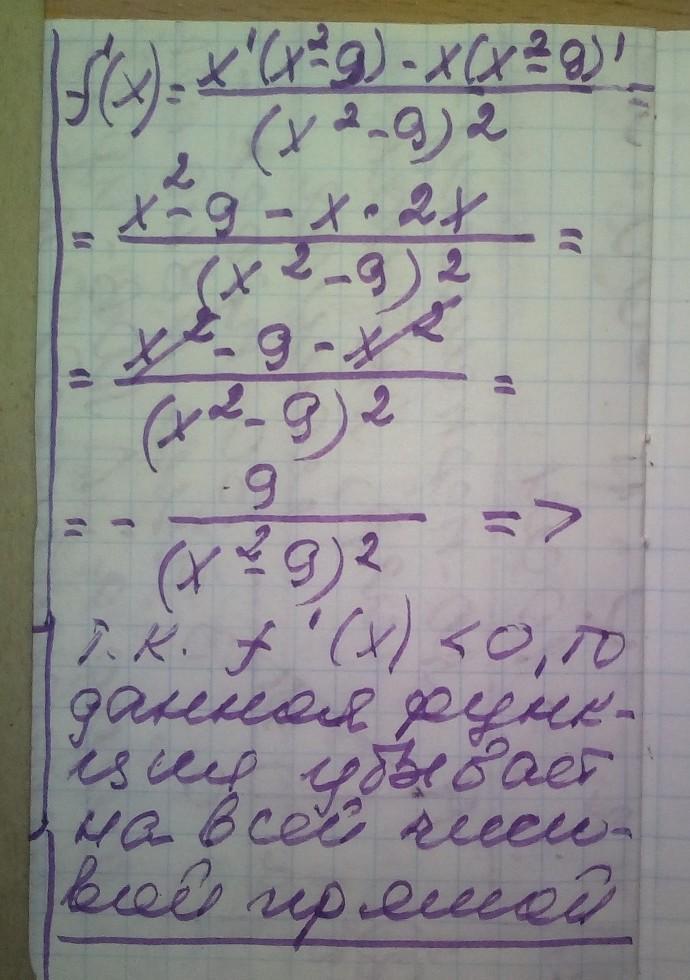 f'(x) = x'(x²-9) - x(x²-9)' / (x²-9)² =
= x²-9 - x·2x / (x²-9)² =
= x² - 9 - x² / (x²-9)² =
= - 9 / (x²-9)² =>
т.к. f'(x) <0, то
данная функ-
ция убывает
на всей число-
вой прямой